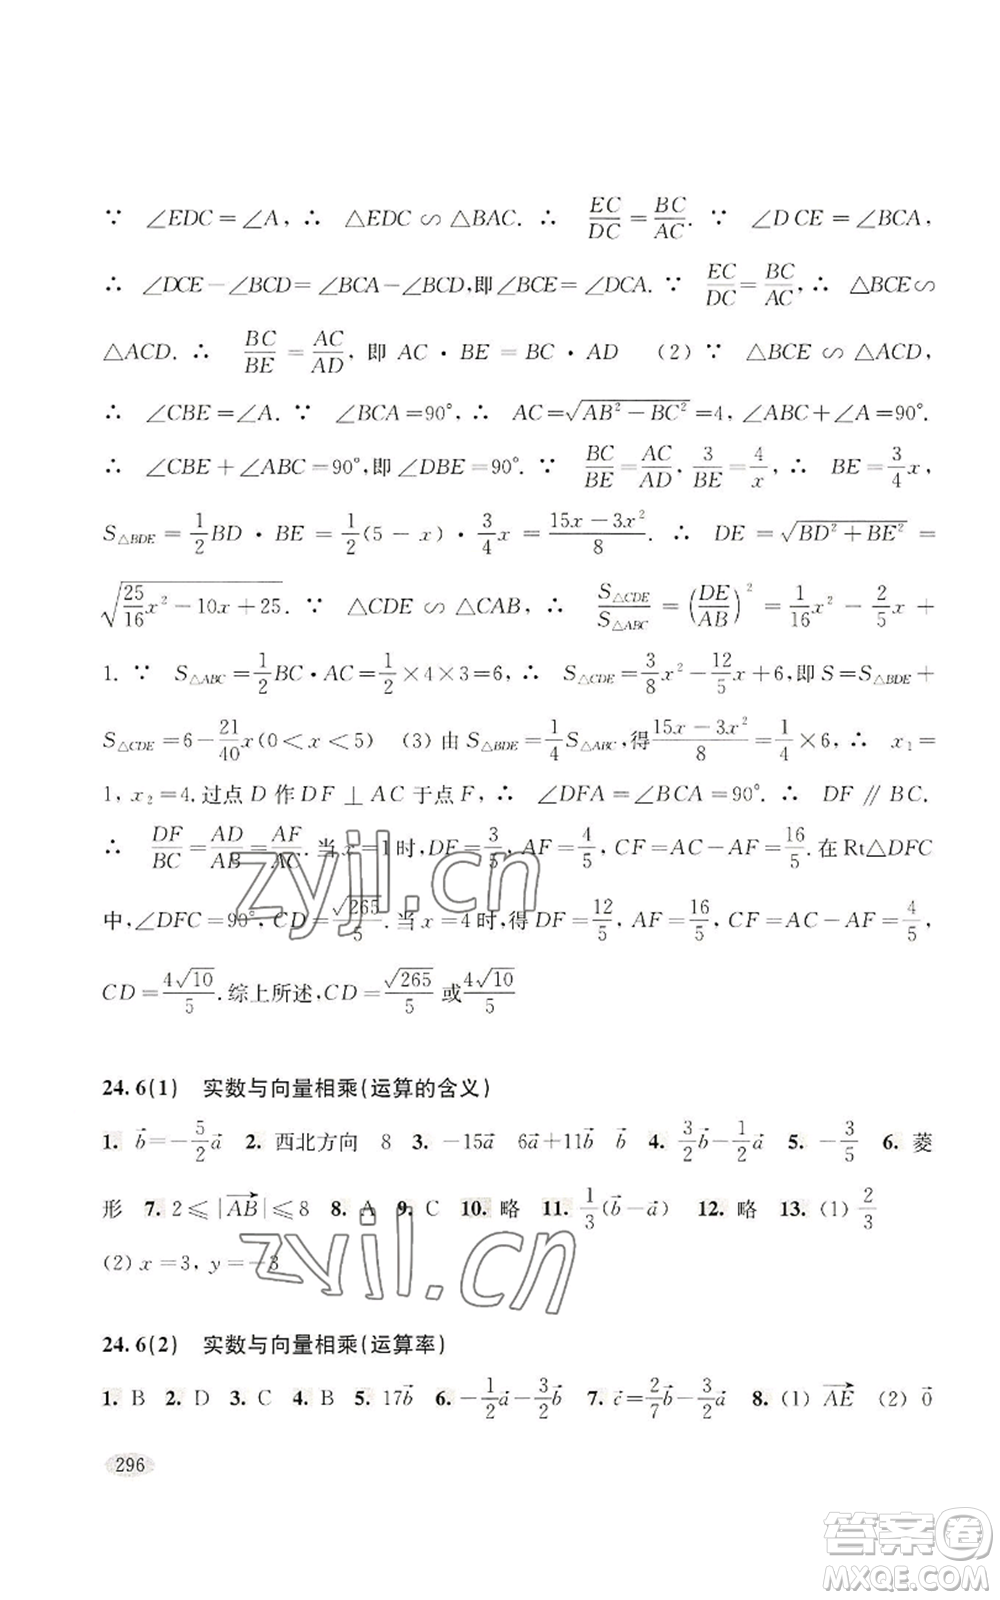 ∵ ∠EDC=∠A, ∴ △EDC∽△BAC. ∴ EC/DC=BC/AC. ∵ ∠DCE=∠BCA,
∴ ∠DCE-∠BCD=∠BCA-∠BCD,即∠BCE=∠DCA. ∵ EC/DC=BC/AC, ∴ △BCE∽
△ACD. ∴ BC/BE=AC/AD, 即 AC·BE=BC·AD (2) ∵ △BCE∽△ACD,
∴ ∠CBE=∠A. ∵ ∠BCA=90°, ∴ AC=√(AB²-BC²)=4, ∠ABC+∠A=90°.
∴ ∠CBE+∠ABC=90°,即∠DBE=90°. ∵ BC/BE=AC/AD, 3/BE=4/x, ∴ BE=3/4x,
S△BDE=1/2BD·BE=1/2(5-x)·3/4x=(15x-3x²)/8. ∴ DE=√(BD²+BE²)=
√(25/16x²-10x+25). ∵ △CDE∽△CAB, ∴ S△CDE/S△ABC=(DE/AB)²=1/16x²-2/5x+
1. ∵ S△ABC=1/2BC·AC=1/2×4×3=6, ∴ S△CDE=3/8x²-12/5x+6,即S=S△BDE+
S△CDE=6-21/40x(0<x<5) (3) 由S△BDE=1/4S△ABC,得(15x-3x²)/8=1/4×6, ∴ x₁=
1, x₂=4.过点D作DF⊥AC于点F, ∴ ∠DFA=∠BCA=90°. ∴ DF∥BC.
∴ DF/BC=AD/AB=AF/AC.当x=1时,DF=3/5, AF=4/5, CF=AC-AF=16/5.在Rt△DFC
中,∠DFC=90°, CD=√265/5.当x=4时,得DF=12/5, AF=16/5, CF=AC-AF=4/5,
CD=4√10/5.综上所述,CD=√265/5或4√10/5
24.6(1) 实数与向量相乘(运算的含义)
1. b⃗=-5/2a⃗ 2. 西北方向 8 3. -15a⃗ 6a⃗+11b⃗ b⃗ 4. 3/2b⃗-1/2a⃗ 5. -3/5 6. 菱
形 7. 2≤|AB⃗|≤8 8. A 9. C 10. 略 11. 1/3(b⃗-a⃗) 12. 略 13. (1) 2/3
(2) x=3, y=-3
24.6(2) 实数与向量相乘(运算率)
1. B 2. D 3. C 4. B 5. 17b⃗ 6. -1/2a⃗-3/2b⃗ 7. c⃗=2/7b⃗-3/2a⃗ 8. (1) AE⃗ (2) 0⃗
296
zyjl.cn
zyjl.cn
答案卷
MXQE.COM